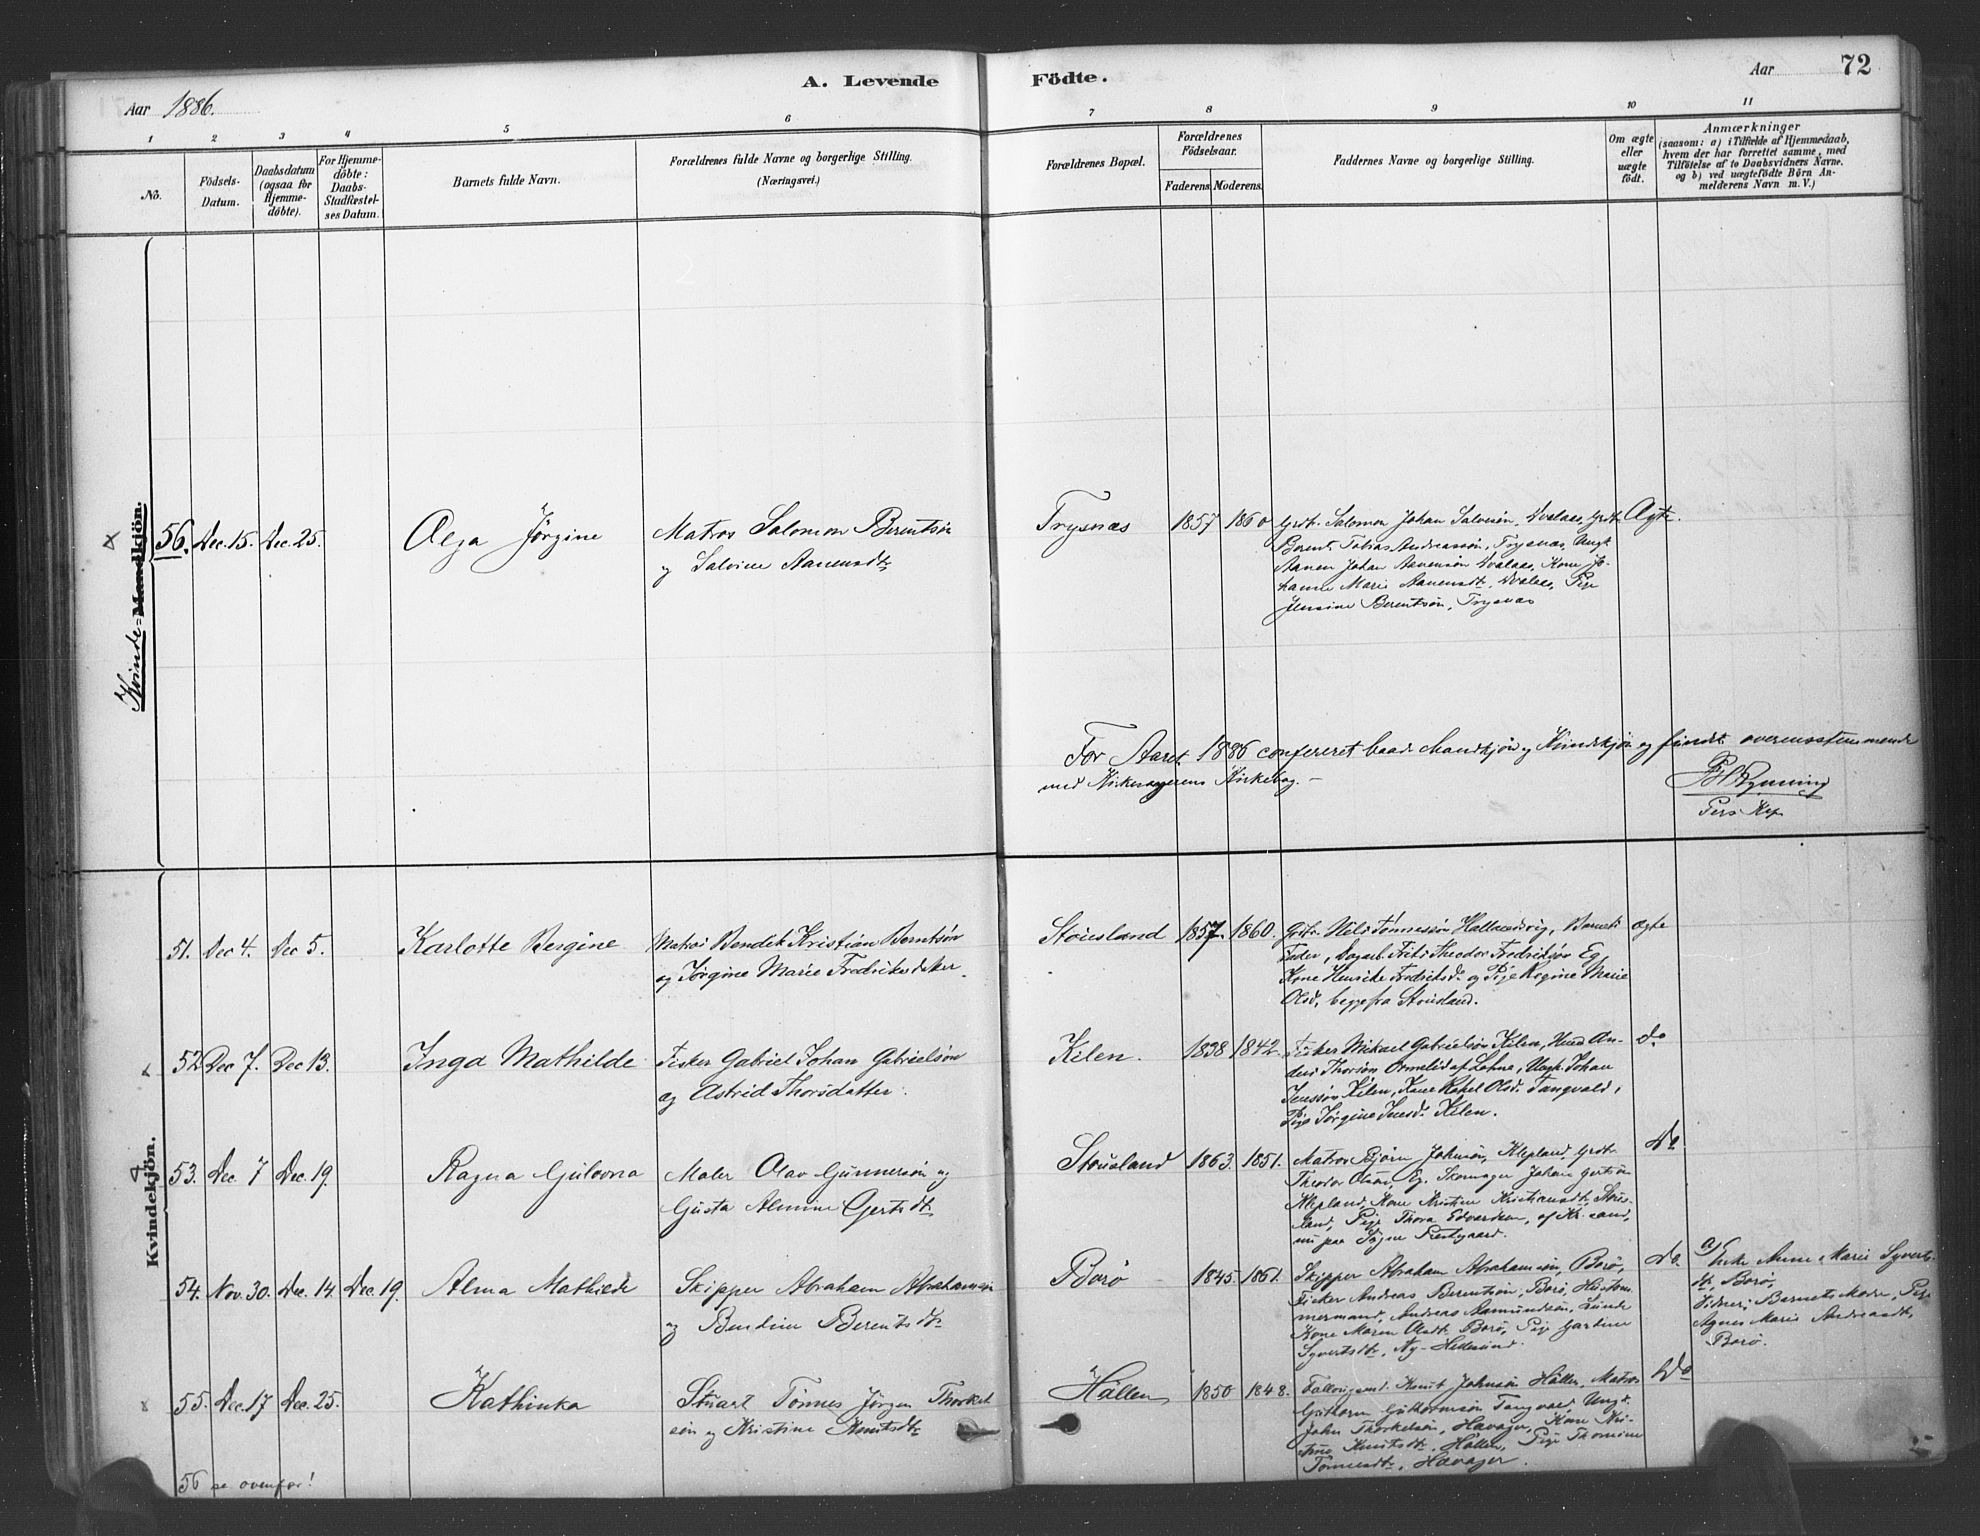 A. Levende Födte.
Aar 1886.
Aar 72
1 2 3 4 5 6 7 8 9 10 11
No.
Födsels-Datum.
Daabsdatum (ogsaa for Hjemme-döbte).
For Hjemme-döbte: Daabs-Stadfæstel-ses Datum.
Barnets fulde Navn.
Forældrenes fulde Navne og borgerlige Stilling.
(Næringsvei.)
Forældrenes Bopæl.
Forældrenes Födselsaar.
Faderens. Moderens.
Faddernes Navne og borgerlige Stilling.
Om ægte eller uægte födt.
Anmærkninger
(saasom: a) i Tilfælde af Hjemmedaab,
hvem der har forrettet samme, med
Tilföielse af to Daabsvidners Navne.
og b) ved uægtefödte Börn An-
melderens Navn m. V.)
Kvinde-Mandkjön.
56. Dec. 15. Dec. 25. Olga Jørgine
Matros Salomon Berentsön
og Salvine Aanensdtr
Trysnæs 1857 1860
Grdr. Salomon Johan Salvesön, Dvalaas, Grdr.
Berent Tobias Andreassön, Trysnæs, Ungk.
Aanen Johan Aanensön Dvalaas, Kone Jo-
hanne Marie Aanensdtr, Dvalaas, Pige
Jensine Berentsön, Trysnæs
Ægte.
For Aaret 1886 confereret baade Mandkjøn og Kvindekjøn og fundet overensstemmende
med Kirkesangerens Kirkebog. –
Pers. Kap.
Kvindekjön.
51. Dec 4. Dec 5. Karlotte Bergine
Matros Bendik Kristian Berntsön
og Jørgine Marie Fredriksdatter.
Stousland 1857. 1860.
Grdr. Nils Tønnessön Hallandvig, Barnets
Fader, Dagarb. Frits Theodor Fredriksön Eg,
Kone Henrike Fredriksd. og Pige Regine Marie
Olsd., begge fra Stousland.
ægte
52 Dec 7. Dec 13. Inga Mathilde
Fisker Gabriel Johan Gabrielsön
og Astrid Thorsdatter.
Kilen. 1838 1842.
Fisker Mikael Gabrielsön Kilen, Husm. An-
ders Thorsön Ormelid af Lohne, Ungk. Johan
Jenssön Kilen, Kone Rakel Olsd. Tangvald,
Pige Jørgine Jensd. Kilen.
do
53. Dec. 7 Dec. 19. Ragna Gulovna
Maler Olav Gunnersön og
Gusta Almine Gertsdtr
Stousland 1863. 1851.
Matros Björn Johnsön, Klepland, Grdr.
Theodor Olsen, Eg, Skomager Johan Gertsön
Klepland, Kone Kristine Kristiansdtr, Stous-
land, Pige Thora Edvardsen, af Kr.sand,
nu paa Søgne Prestgaard.
Do
54. Nov. 30. Dec. 14. Dec. 19. Alma Mathilde
Skipper Abraham Abrahamsen
og Bendine Berentsdtr
Borø 1845. 1861.
Skipper Abraham Abrahamsön, Borø,
Fisker Andreas Berentsön, Borö, Husöm-
mermand, Andreas Aamundsön, Lunde
Kone Maren Olsdtr Borø, Pige Gardine
Syvertsdtr, Ny-Hellesund.
Do
a) Enke Anne Marie Syverts-
dtr, Borø,
Vidner: Barnets Moder, Pige
Agnes Marie Andreasdtr,
Borø.
55. Dec. 17 Dec. 25. Kathinka
Stuart Tönnes Jörgen Thorkel
sön og Kristine Knutsdtr
Höllen 1850 1848.
Knut Johnsön Höllen, Matros
Guthorm Guthormsön Tangvald, Ungk.
John Thorkelsön, Havager, Kone Kri-
stine Knutsdtr, Höllen, Pige Thomine
Tönnesdtr, Havager.
Do
56 se ovenfor!